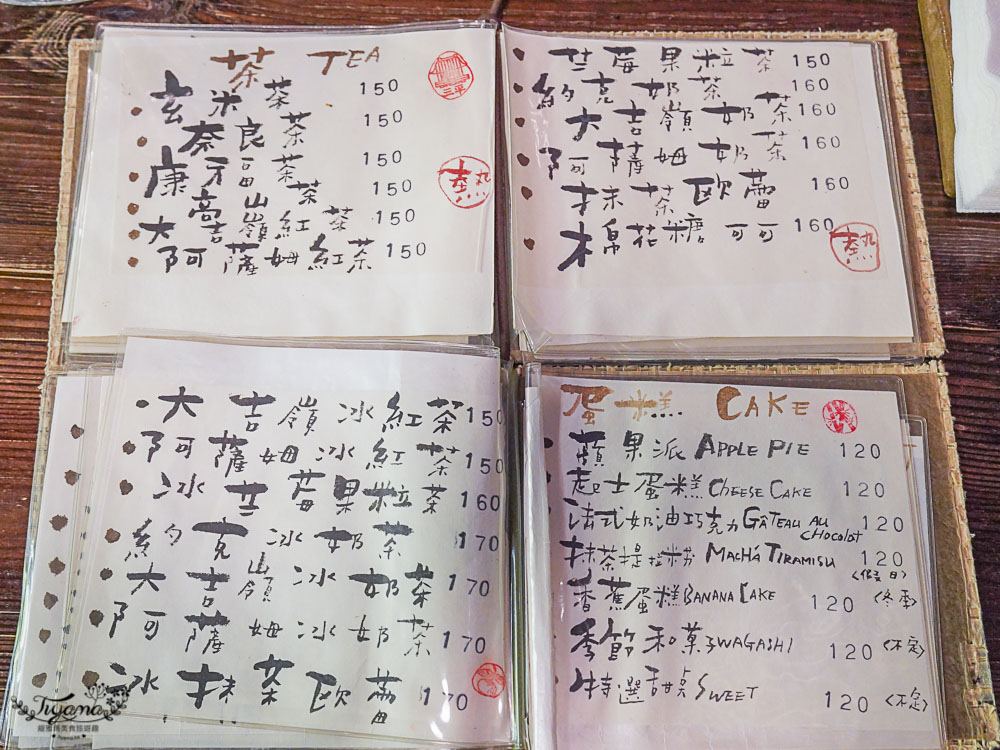 茶 TEA
三平
玄米茶 150
奈良茶 150
康福茶 150
牙高山茶 150
大吉嶺紅茶 150
阿薩姆紅茶 150
熱
草莓果粒茶 150
約克奶茶 160
大吉嶺奶茶 160
阿薩姆奶茶 160
抹茶歐蕾 160
木帛花糖可可 160
熱
大吉嶺冰紅茶 150
阿薩姆冰紅茶 150
冰草莓果粒茶 160
約克冰奶茶 170
大吉嶺冰奶茶 170
阿薩姆冰奶茶 170
冰抹茶歐蕾 170
蛋糕 CAKE
蘋果派 APPLE PIE 120
起士蛋糕 CHEESE CAKE 120
法式奶油巧克力 GÂTEAU AU CHOCOLAT 120
抹茶提拉米 MACHÁ TIRAMISU 120 〈假日〉
香蕉蛋糕 BANANA CAKE 120 〈冬季〉
季節和菓子 WAGASHI 120 〈不定〉
特選甜点 SWEET 120 〈不定〉
Tiyama